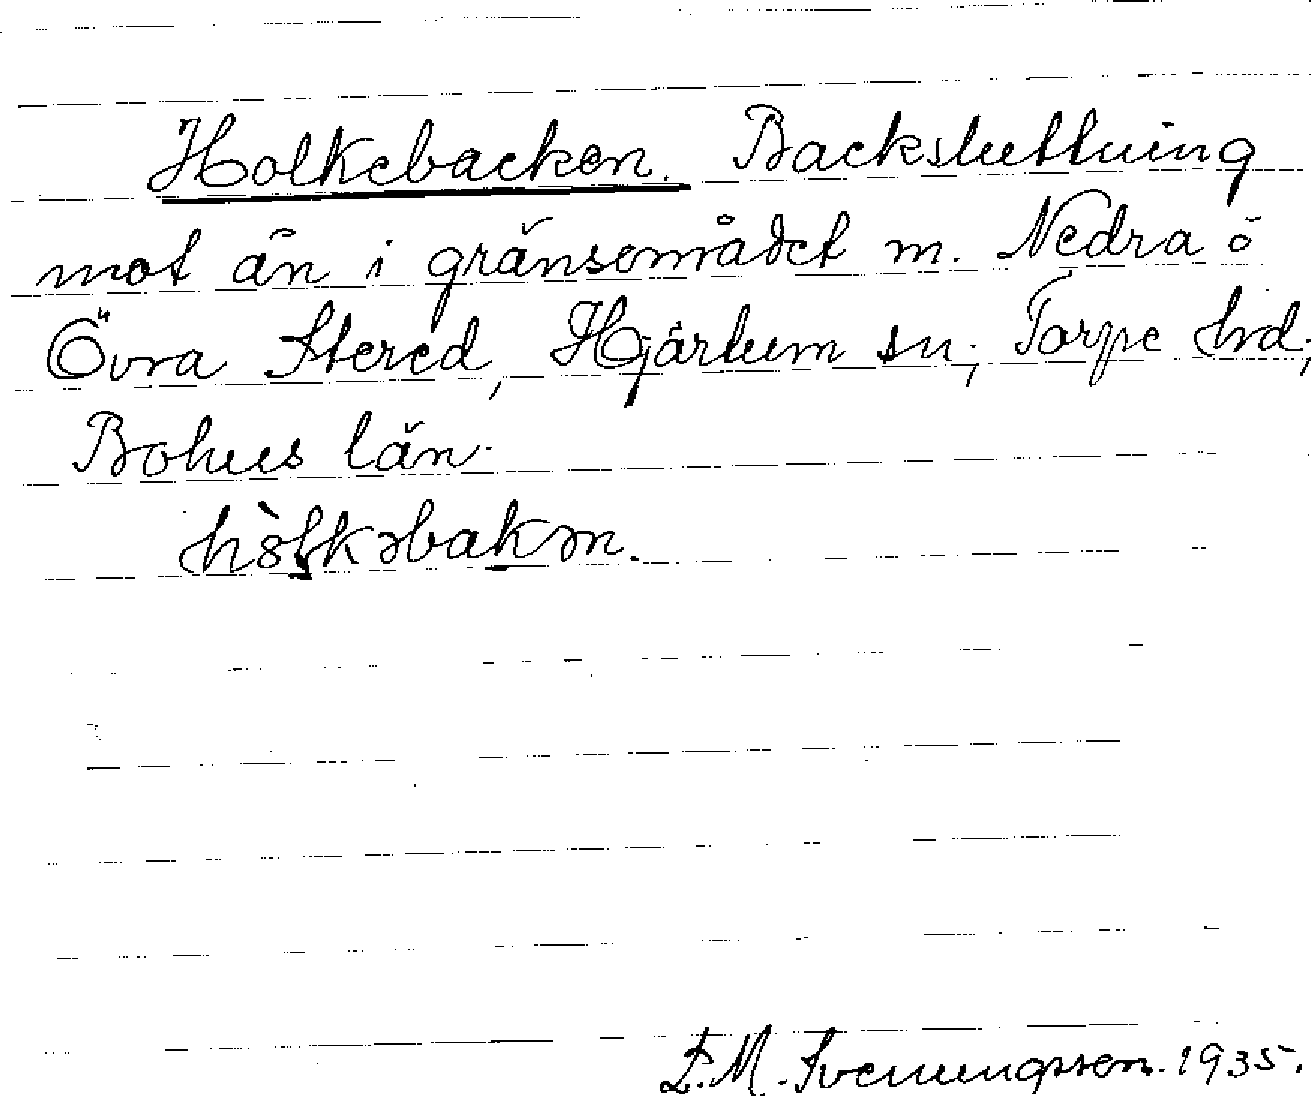 Holkebacken. Backsluttning
mot ån i gränsområdet m. Nedra o
Övra Stered, Hjärtum sn, Torpe hd,
Bohus län.
E.M. Svenungsson. 1935.